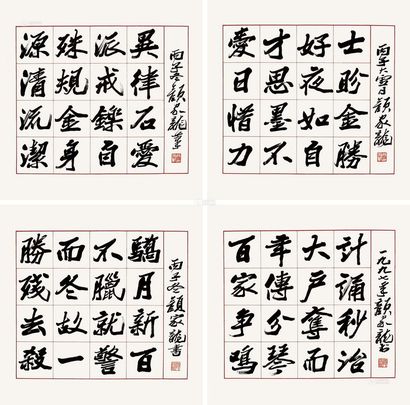 源殊派異
清規戒律
流金鑠石
潔身自愛
丙子冬顏家龍書
愛才好士
日思夜盼
惜墨如金
力不自勝
丙子大雪日顏家龍
勝而不驕
殘冬臘月
去故就新
殺一警百
丙子冬顏家龍書
百年大計
家傳戶誦
爭分奪秒
鳴琴而治
一九九七年顏家龍書